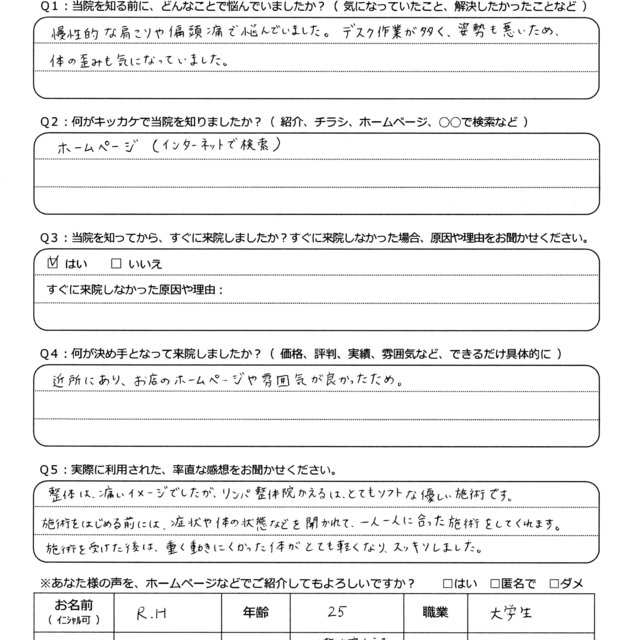 Q1：当院を知る前に、どんなことで悩んでいましたか？（ 気になっていたこと、解決したかったことなど ）
慢性的な肩こりや偏頭痛で悩んでいました。デスク作業が多く、姿勢も悪いため、
体の歪みも気になっていました。
Q2：何がキッカケで当院を知りましたか？（ 紹介、チラシ、ホームページ、○○で検索など ）
ホームページ（インターネットで検索）
Q3：当院を知ってから、すぐに来院しましたか？すぐに来院しなかった場合、原因や理由をお聞かせください。
☑ はい □ いいえ
すぐに来院しなかった原因や理由：
Q4：何が決め手となって来院しましたか？（ 価格、評判、実績、雰囲気など、できるだけ具体的に ）
近所にあり、お店のホームページや雰囲気が良かったため。
Q5：実際に利用された、率直な感想をお聞かせください。
整体は、痛いイメージでしたが、リンパ整体院かえるは、とてもソフトな優しい施術です。
施術をはじめる前には、症状や体の状態などを聞かれて、一人一人に合った施術をしてくれます。
施術を受けた後は、重く動きにくかった体がとても軽くなり、スッキリしました。
※あなた様の声を、ホームページなどでご紹介してもよろしいですか？ □はい □匿名で □ダメ
お名前 R.H 年齢 25 職業 大学生
（イニシャル可）